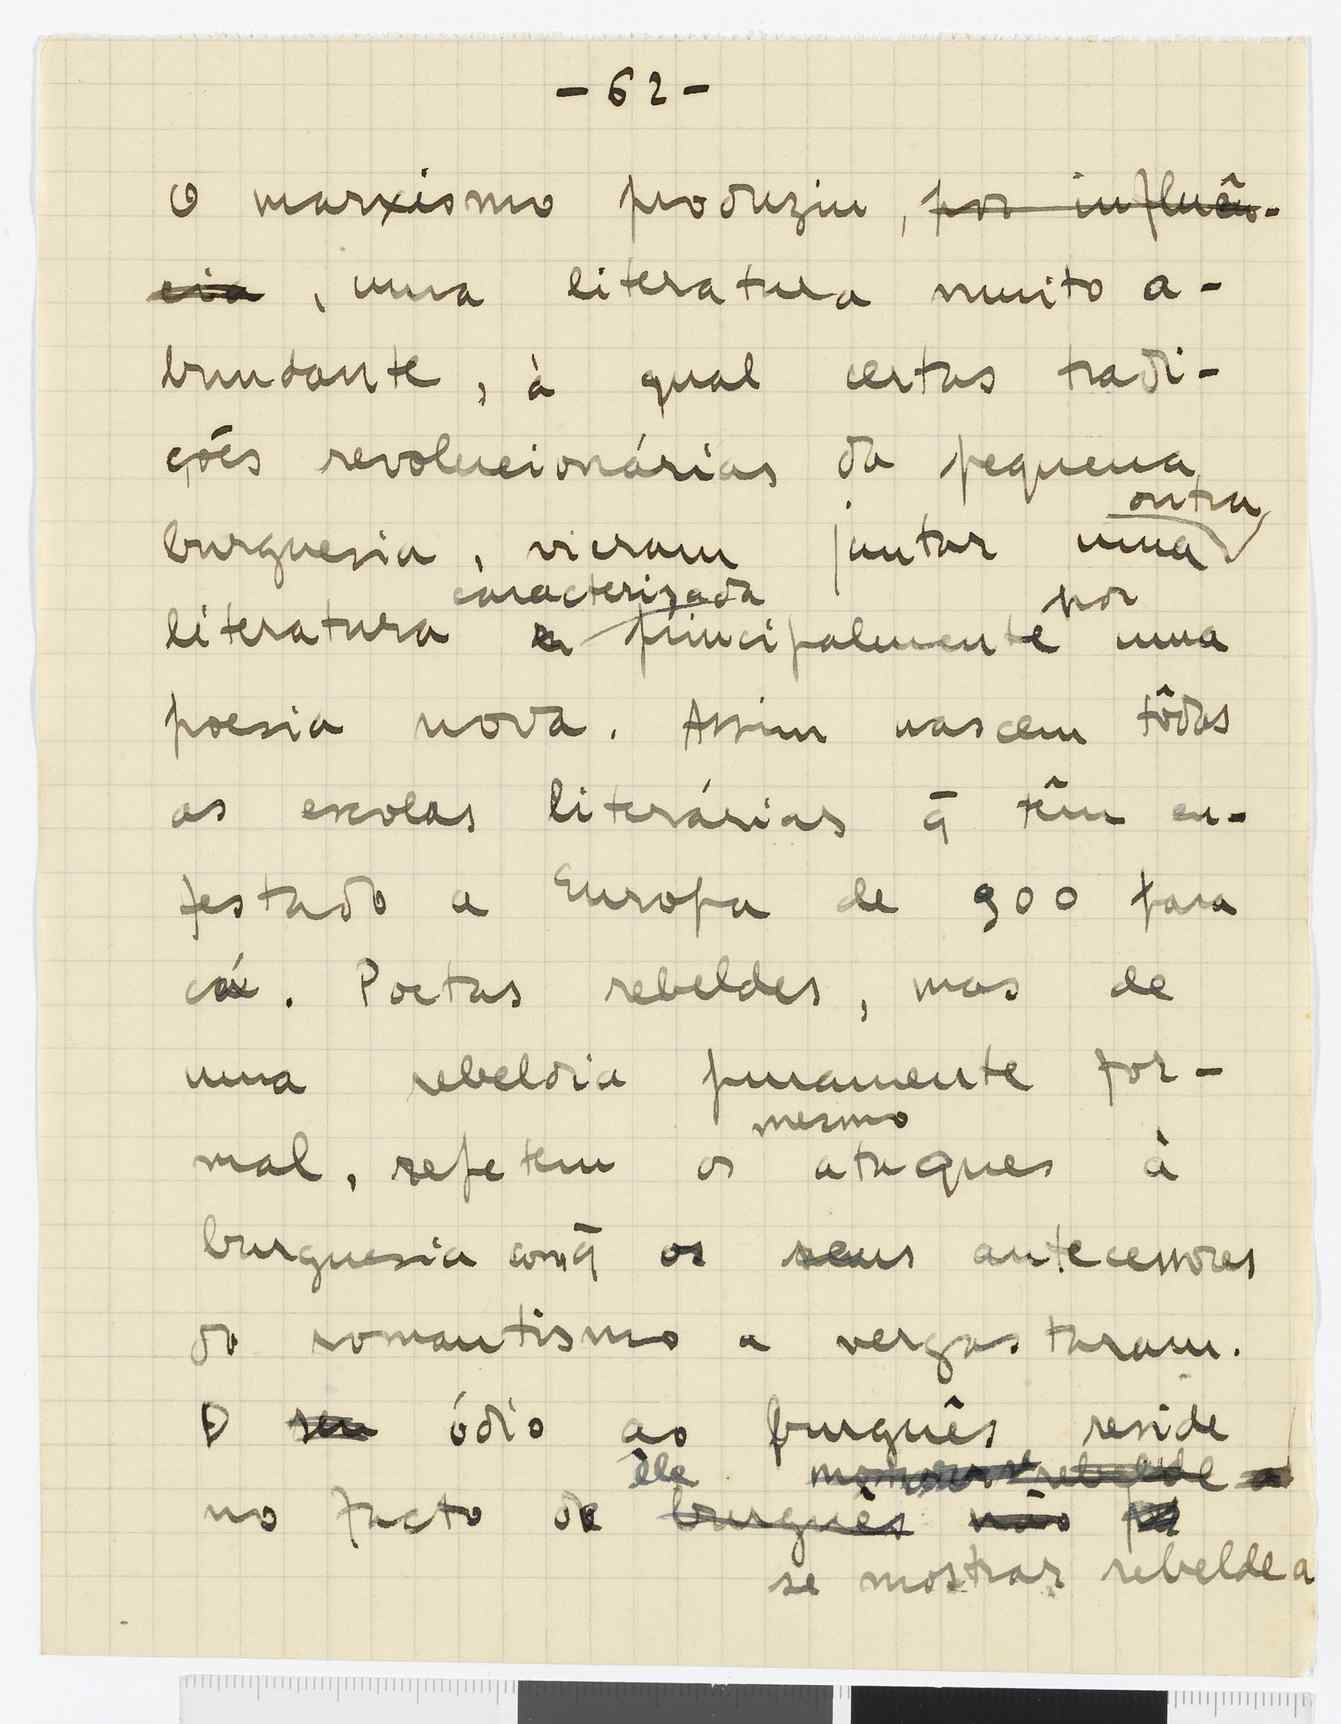 - 62 -
O marxismo produziu, por influên-
cia, uma literatura muito a-
bundante, à qual certas tradi-
ções revolucionárias da pequena
outra
burguesia, vieram juntar uma
caracterizada por
literatura principalmente uma
poesia nova. Assim nascem tôdas
as escolas literárias q̄ têm en-
festado a Europa de 900 para
cá. Poetas rebeldes, mas de
uma rebeldia puramente for-
mesmo
mal, repetem os ataques à
burguesia com q̄ os seus antecessores
do romantismo a vergastaram.
O seu ódio ao burguês reside
êle mostrar se rebelde a
no facto de burguês não
se mostrar rebelde a